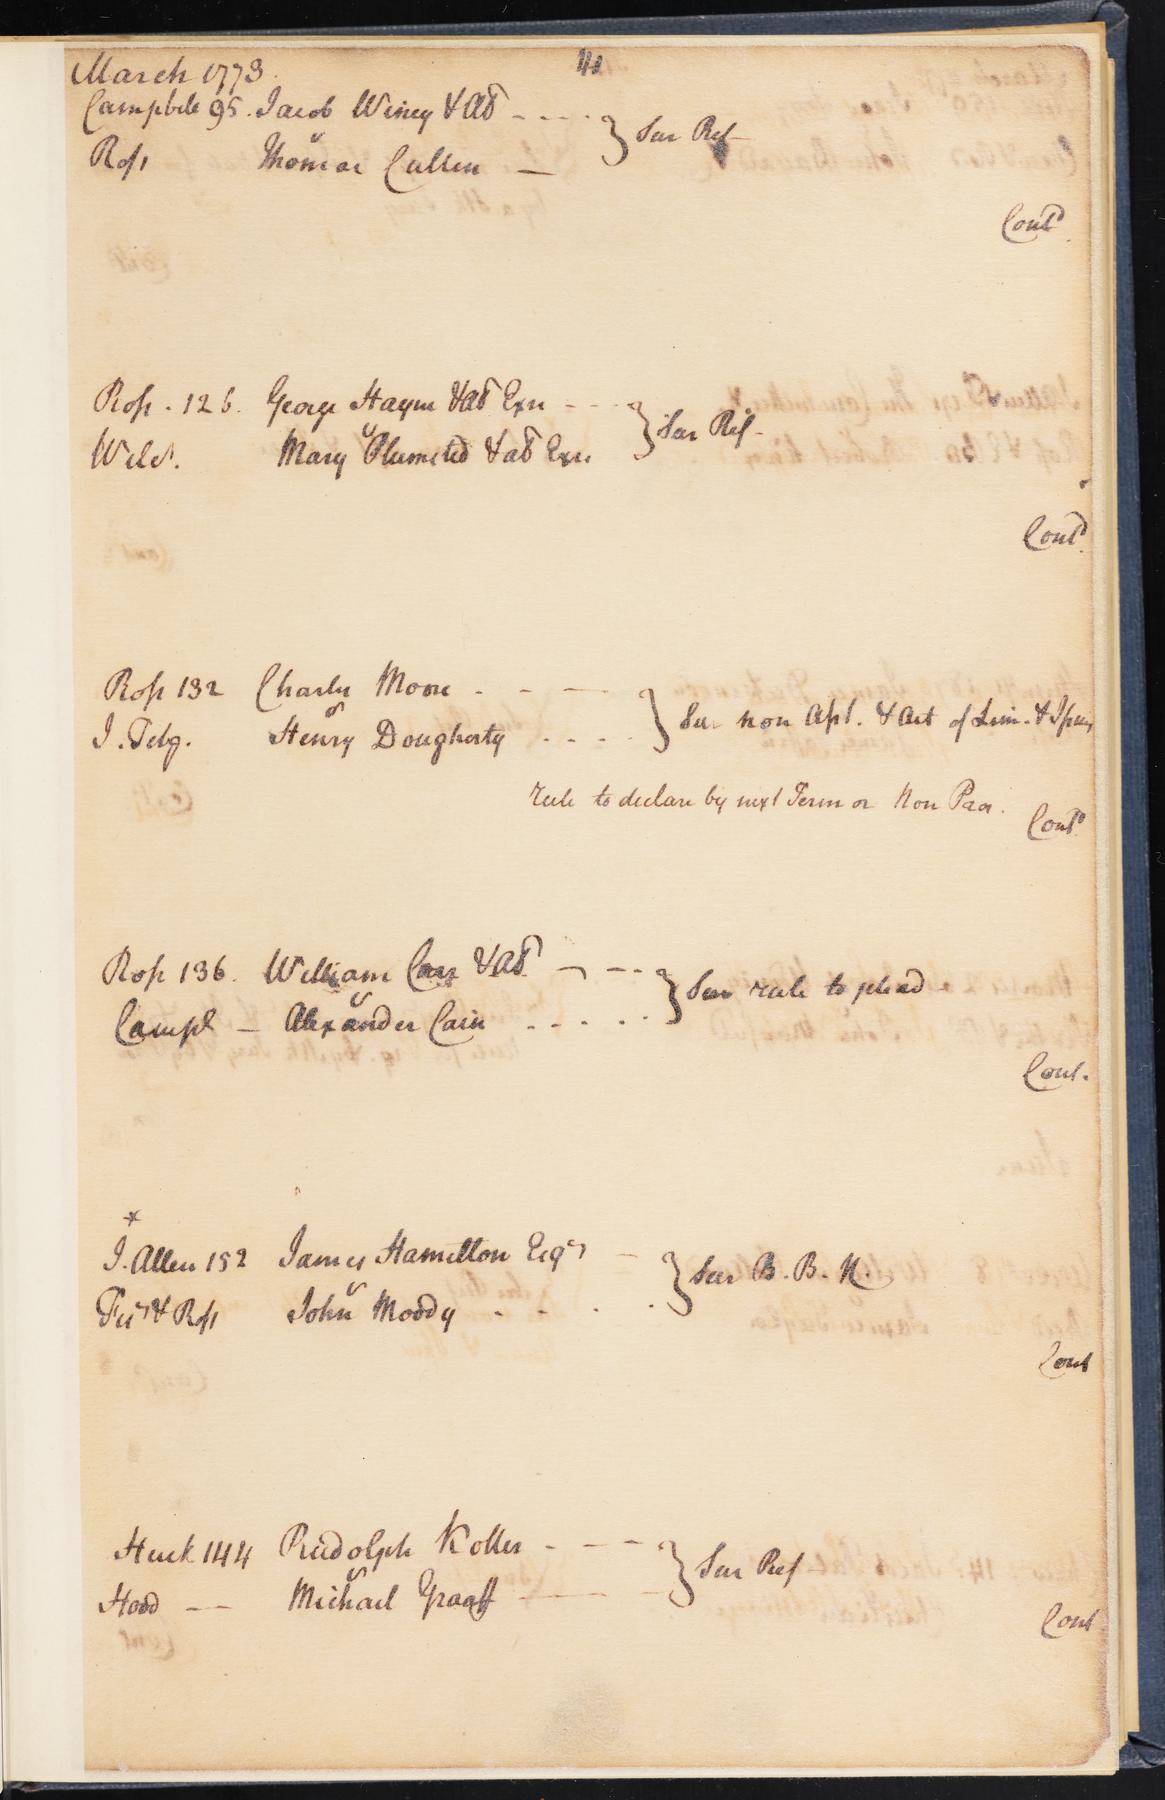 March 1773.
Campbele 95. Jacob Winey & al ---- } Sur Ref
Ross v Thomas Cullen —
Cont
Ross . 126. George Haym & al Exrs --- } Sur Ref -
Wilcs. v Mary Plumsted & al Exrs
Cont
Ross 132 Charles Moore - - — } Sur non Aps't. & Act of Lim. &
J. v Henry Dougherty ....
rule to declare by next Term or Non Pros.
Cont
Ross 136. William Carr & al — -- } Sur rule to plead -
Campl — v Alexander Cain .....
Cont.
*
J. Allen 152 James Hamilton Esqr — } Sur B. B. N.
& Ross v John Moody - - . .
Cont
Huck 144 Rudolph Koller - - - - } Sur Ref
Hood — v Michael Graaff ——
Cont